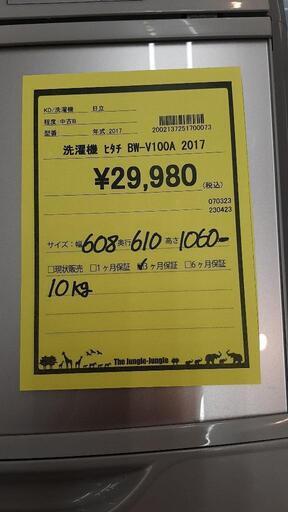 KD/洗濯機 日立
程度:中古B
型番: 年式:2017
2002137251700073
洗濯機 ﾋﾀﾁ BW-V100A 2017
¥29,980(税込)
070323
230423
サイズ:幅 608 奥行 610 高さ 1060
□現状販売 □1ヶ月保証 ☑3ヶ月保証 □6ヶ月保証
10kg
The Jungle-Jungle